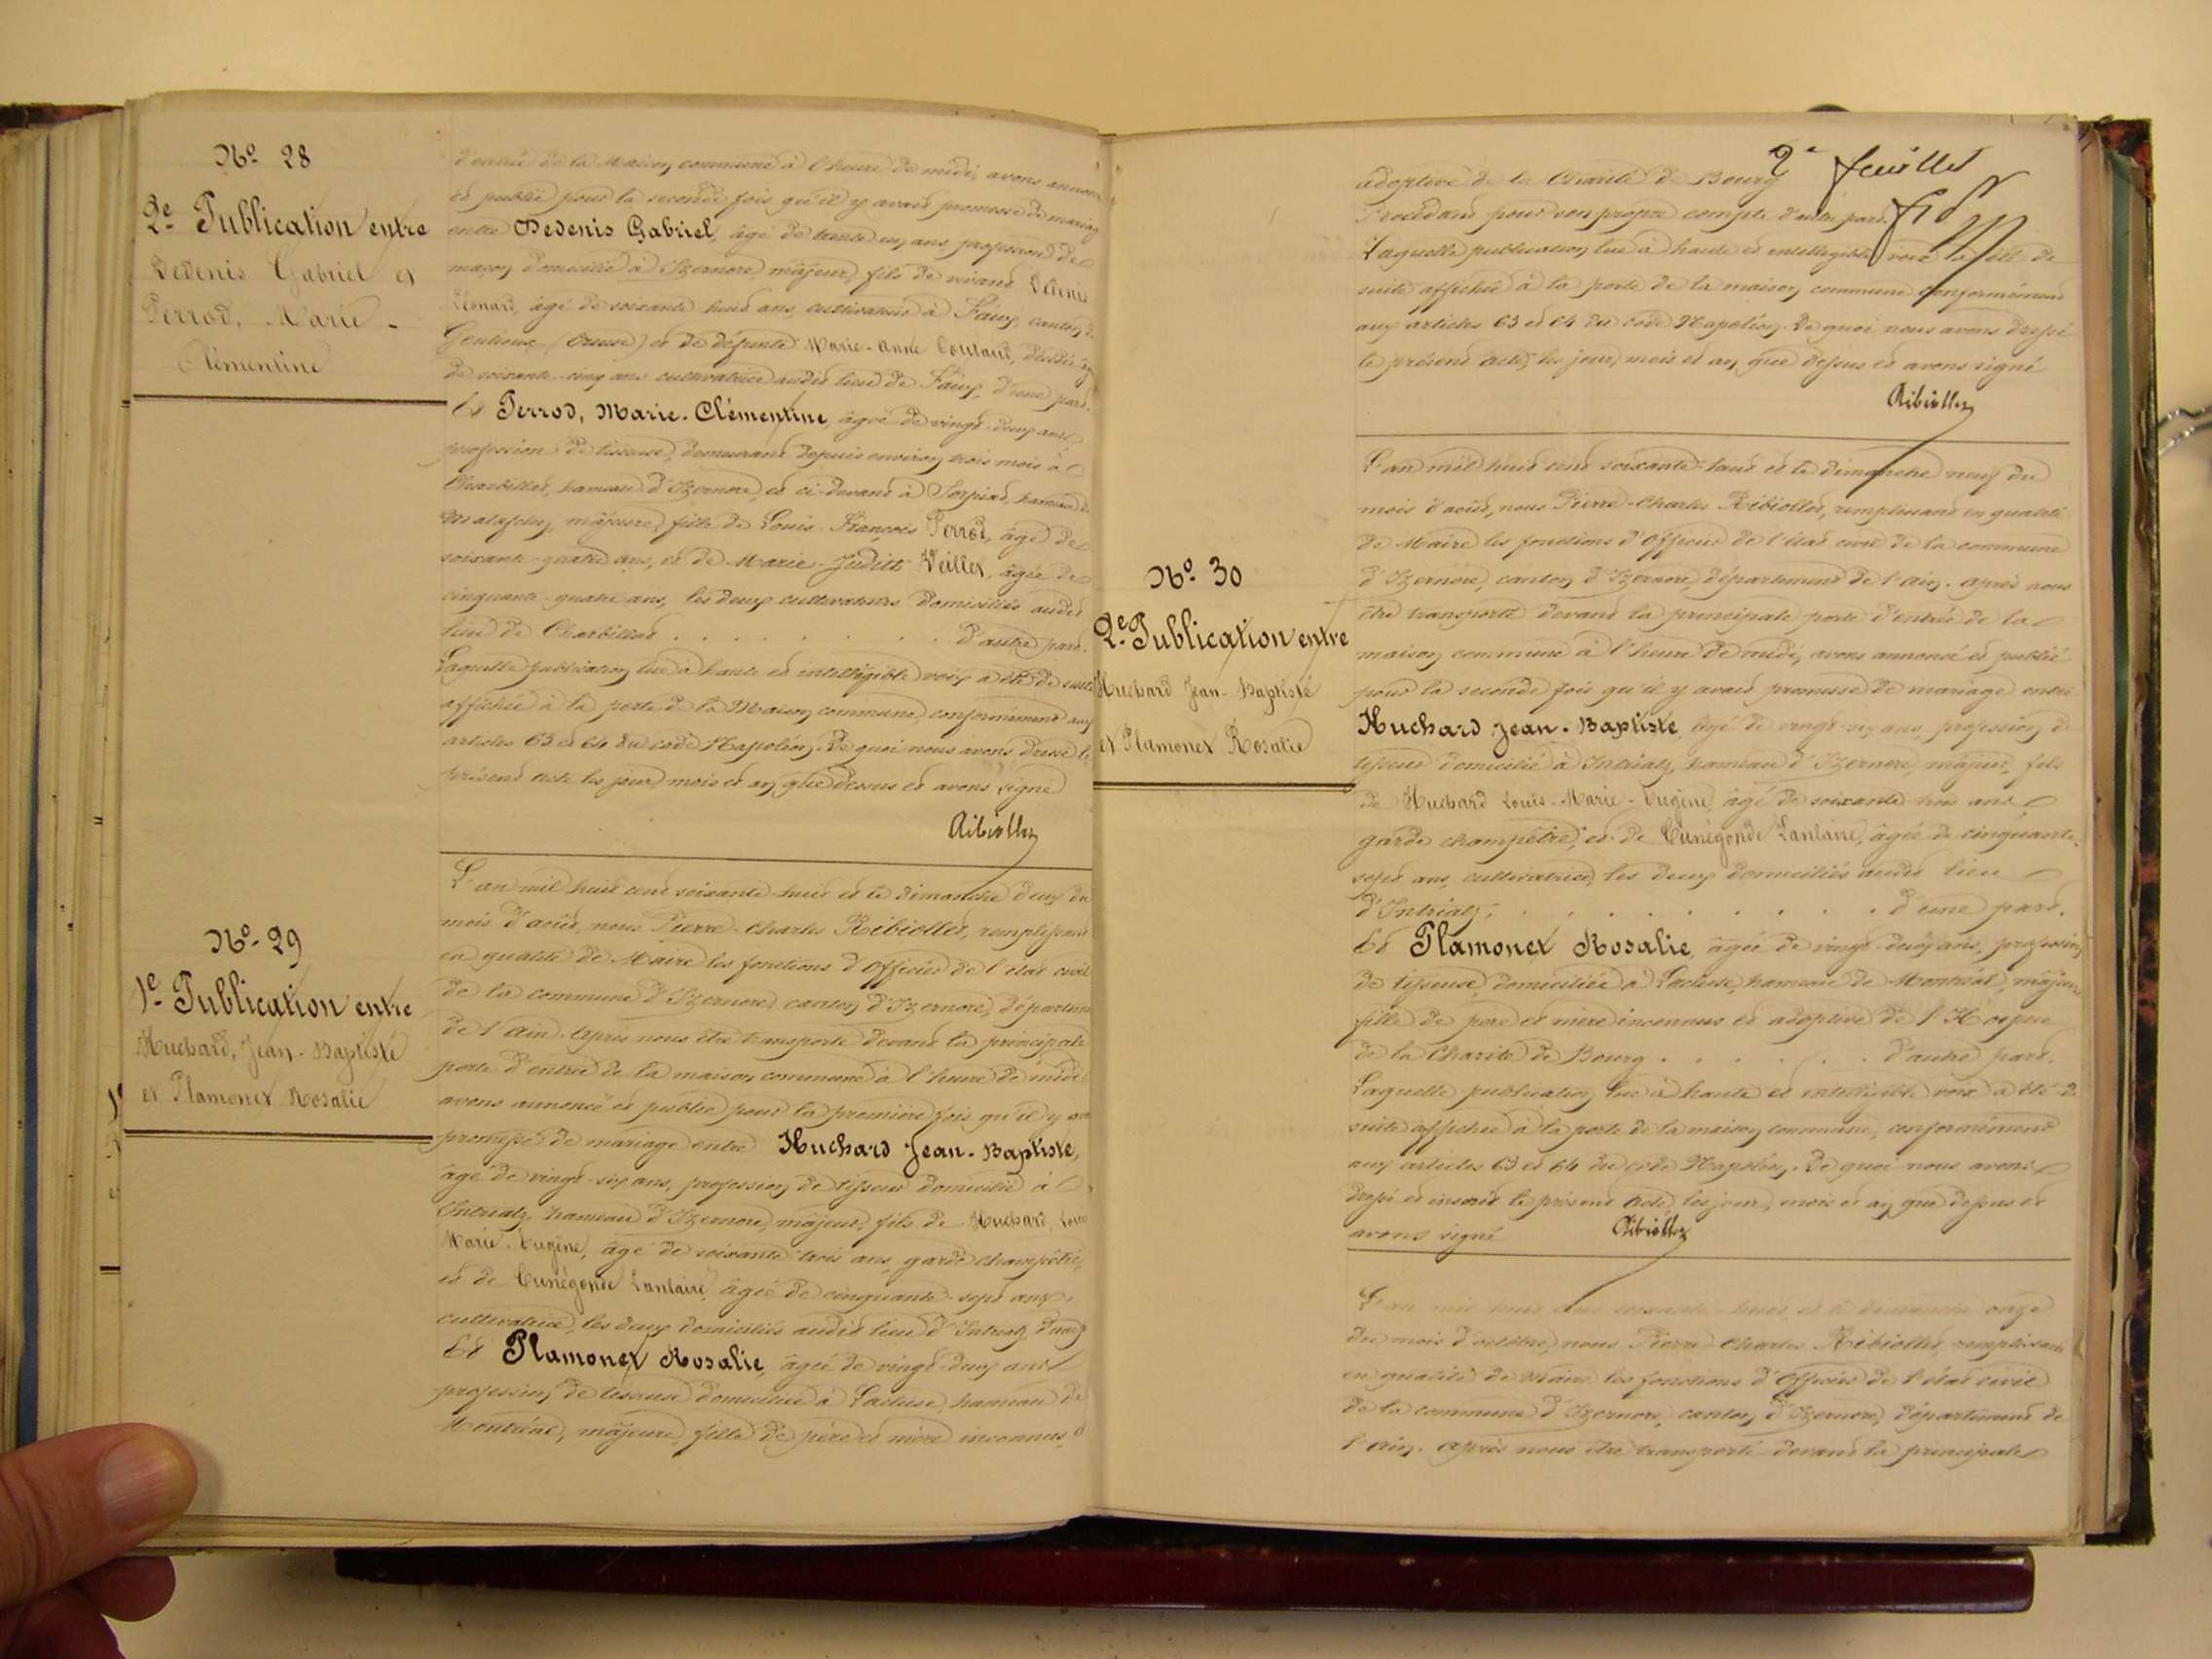 No 28
2e Publication entre
Dedenis Gabriel et
Perrod, Marie-
Clémentine
d'entrée de la Maison commune à l'heure de midi, avons annoncé
et publié pour la seconde fois qu'il y avait promesse de mariage
entre Dedenis Gabriel, âgé de trente un ans, profession de
maçon domicilié à Izernore, majeur, fils de vivant Dedenis
Léonard, âgé de soixante huit ans, cultivateur à Faux, canton de
Gentioux (Creuse) et de défunte Marie-Anne décédée
de soixante-cinq ans cultivatrice audit lieu de Faux, d'une part.
Et Perrod, Marie-Clémentine, âgée de vingt-deux ans
profession de tisseuse, demeurant depuis environ trois mois à
Charbillat, hameau d'Izernore, et ci-devant à hameau de
majeure, fille de Louis-François Perrod, âgé de
soixante-quatre ans, et de Marie-Judith Veillet, âgée de
cinquante-quatre ans, les deux cultivateurs domiciliés audit
lieu de Charbillat . . . . . . . . . d'autre part.
Laquelle publication lue à haute et intelligible voix a été de suite
affichée à la porte de la Maison commune, conformément aux
articles 63 et 64 du code Napoléon. De quoi nous avons dressé le
présent acte les jour, mois et an que dessus et avons signé
Ribiollet
No 29
1e Publication entre
Huchard, Jean-Baptiste
et Plamonet Rosalie
L'an mil huit cent soixante-huit et le dimanche deux du
mois d'août, nous Pierre-Charles Ribiollet, remplissant
en qualité de Maire les fonctions d'Officier de l'état civil
de la commune d'Izernore, canton d'Izernore, département
de l'Ain. Après nous être transporté devant la principale
porte d'entrée de la maison commune à l'heure de midi
avons annoncé et publié pour la première fois qu'il y avait
promesse de mariage entre Huchard Jean-Baptiste,
âgé de vingt-six ans, profession de tisseur domicilié à
Intriatz, hameau d'Izernore, majeur, fils de Huchard, Louis
Marie-Eugène, âgé de soixante trois ans, garde champêtre,
et de Cunégonde Lantaire, âgée de cinquante-sept ans,
cultivatrice, les deux domiciliés audit lieu d'Intriatz d'une part
Et Plamonet Rosalie, âgée de vingt-deux ans
profession de tisseuse domiciliée à Lacluse, hameau de
Montréal, majeure, fille de père et mère inconnus, et
2e feuillet
adoptive de la Charité de Bourg
Procédant pour son propre compte d'autre part.
Laquelle publication lue à haute et intelligible voix a été de
suite affichée à la porte de la maison commune conformément
aux articles 63 et 64 du code Napoléon. De quoi nous avons dressé
le présent acte, les jour, mois et an que dessus et avons signé
Ribiollet
No 30
2e Publication entre
Huchard Jean-Baptiste
et Plamonet Rosalie
L'an mil huit cent soixante-huit et le dimanche neuf du
mois d'août, nous Pierre-Charles Ribiollet, remplissant en qualité
de Maire les fonctions d'Officier de l'état civil de la commune
d'Izernore, canton d'Izernore, département de l'Ain. Après nous
être transporté devant la principale porte d'entrée de la
maison commune à l'heure de midi, avons annoncé et publié
pour la seconde fois qu'il y avait promesse de mariage entre
Huchard Jean-Baptiste, âgé de vingt-six ans, profession de
tisseur domicilié à Intriatz, hameau d'Izernore, majeur, fils
de Huchard Louis-Marie-Eugène âgé de soixante trois ans
garde champêtre, et de Cunégonde Lantaire, âgée de cinquante-
sept ans, cultivatrice, les deux domiciliés audit lieu
d'Intriatz, . . . . . . . . . d'une part.
Et Plamonet Rosalie, âgée de vingt-deux ans, profession
de tisseuse, domiciliée à Lacluse, hameau de Montréal, majeure
fille de père et mère inconnus et adoptive de l'Hospice
de la Charité de Bourg . . . . . . d'autre part.
Laquelle publication lue à haute et intelligible voix a été de
suite affichée à la porte de la maison commune, conformément
aux articles 63 et 64 du code Napoléon. De quoi nous avons
dressé et inscrit le présent acte, les jour, mois et an que dessus et
avons signé Ribiollet
L'an mil huit cent soixante-huit et le dimanche onze
du mois d'octobre, nous Pierre Charles Ribiollet remplissant
en qualité de Maire les fonctions d'Officier de l'état civil
de la commune d'Izernore, canton d'Izernore, département de
l'Ain. Après nous être transporté devant la principale